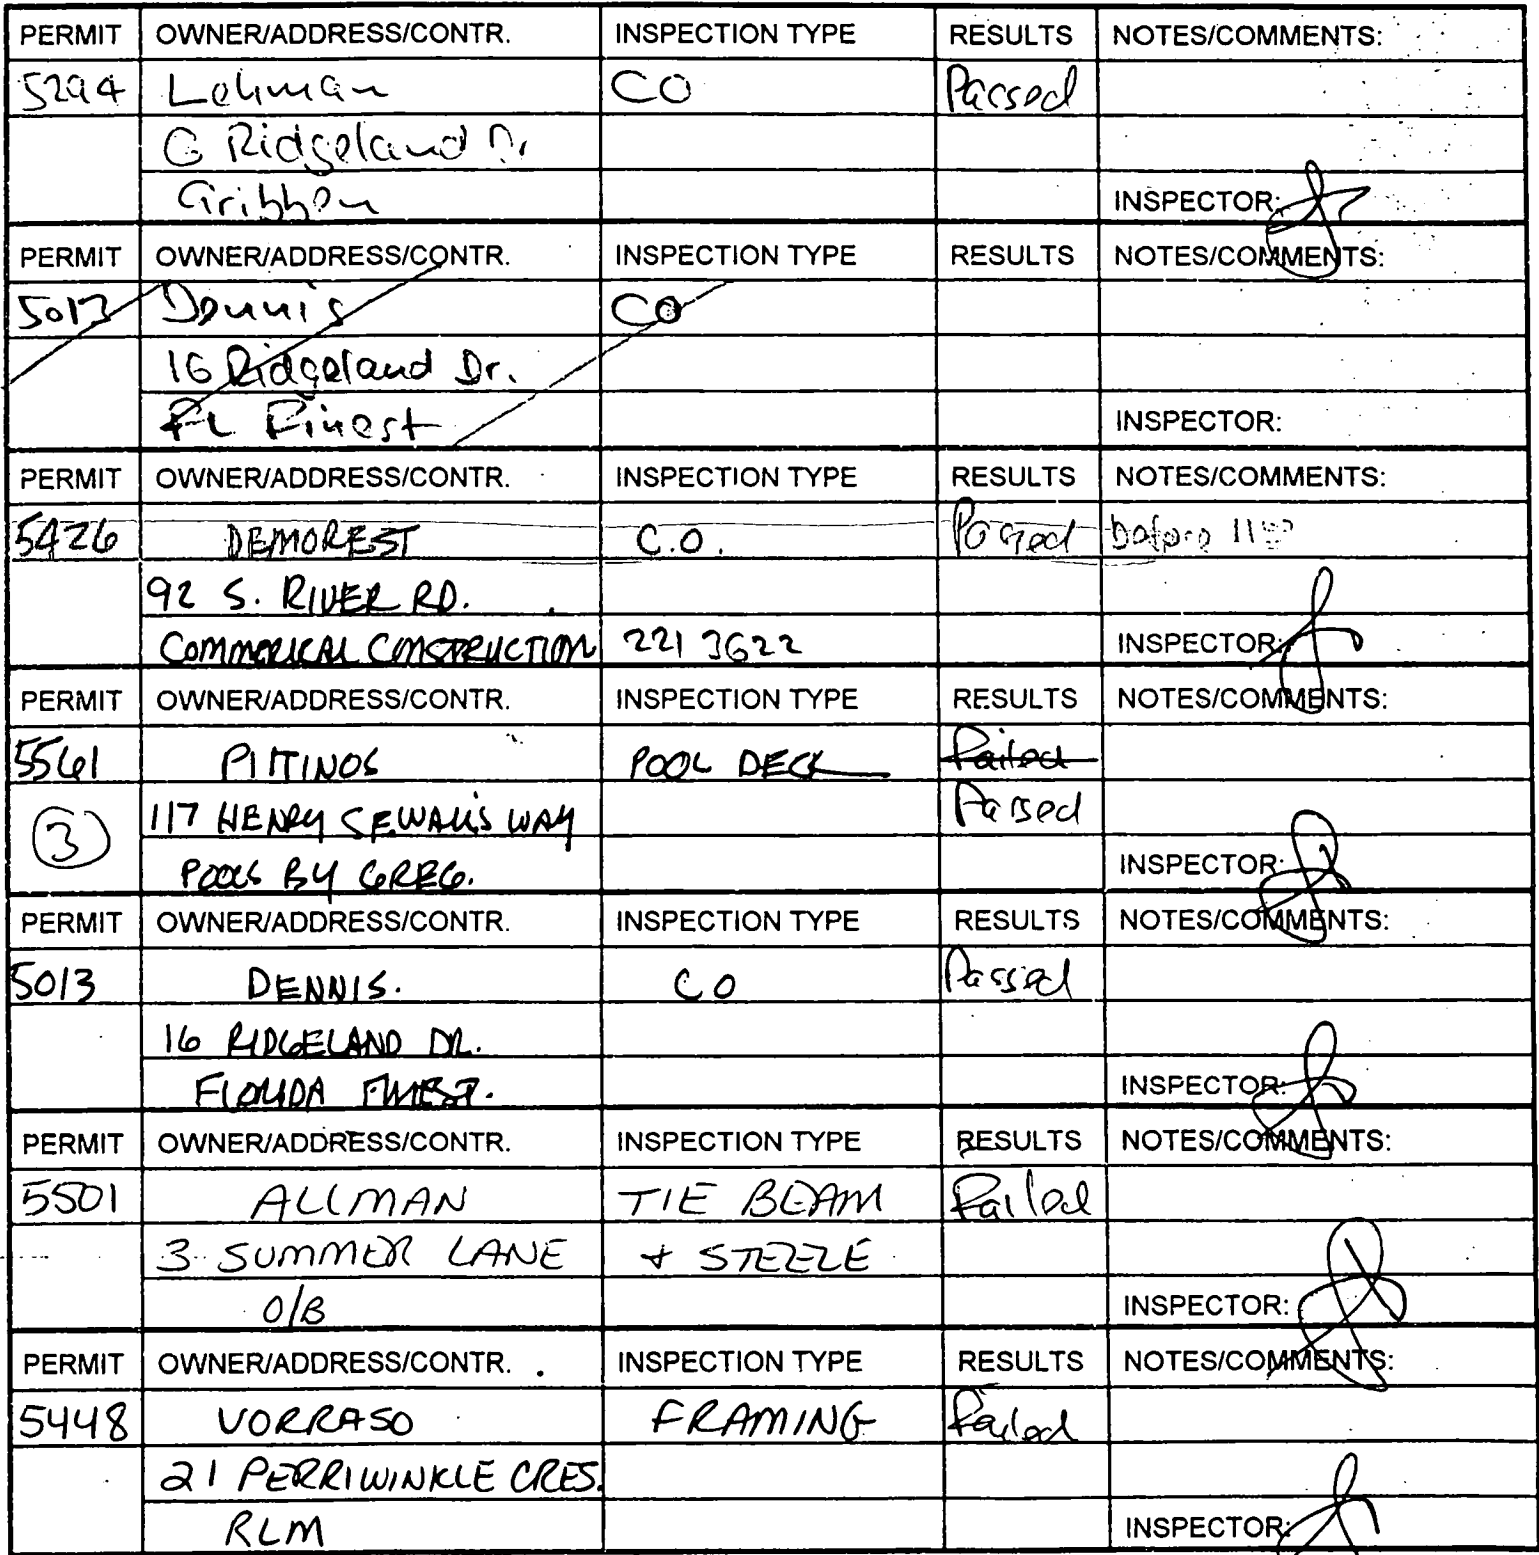 PERMIT OWNER/ADDRESS/CONTR. INSPECTION TYPE RESULTS NOTES/COMMENTS:
5294 Lehman CO Passed
6 Ridgeland Dr
Gribben INSPECTOR:
PERMIT OWNER/ADDRESS/CONTR. INSPECTION TYPE RESULTS NOTES/COMMENTS:
5013 Dennis CO
16 Ridgeland Dr.
FL Finest INSPECTOR:
PERMIT OWNER/ADDRESS/CONTR. INSPECTION TYPE RESULTS NOTES/COMMENTS:
5426 DEMOREST C.O. Passed before 11
92 S. RIVER RD.
COMMERICAL CONSTRUCTION 221 3622 INSPECTOR:
PERMIT OWNER/ADDRESS/CONTR. INSPECTION TYPE RESULTS NOTES/COMMENTS:
5561 PITTINOS POOL DECK Failed
3 117 HENRY SEWALL'S WAY Passed
POOLS BY GREG. INSPECTOR:
PERMIT OWNER/ADDRESS/CONTR. INSPECTION TYPE RESULTS NOTES/COMMENTS:
5013 DENNIS. CO Passed
16 RIDGELAND DR.
FLORIDA FINEST. INSPECTOR:
PERMIT OWNER/ADDRESS/CONTR. INSPECTION TYPE RESULTS NOTES/COMMENTS:
5501 ALLMAN TIE BEAM Failed
3 SUMMER LANE + STEELE
O/B INSPECTOR:
PERMIT OWNER/ADDRESS/CONTR. INSPECTION TYPE RESULTS NOTES/COMMENTS:
5448 VORRASO FRAMING Failed
21 PERRIWINKLE CRES.
RLM INSPECTOR: